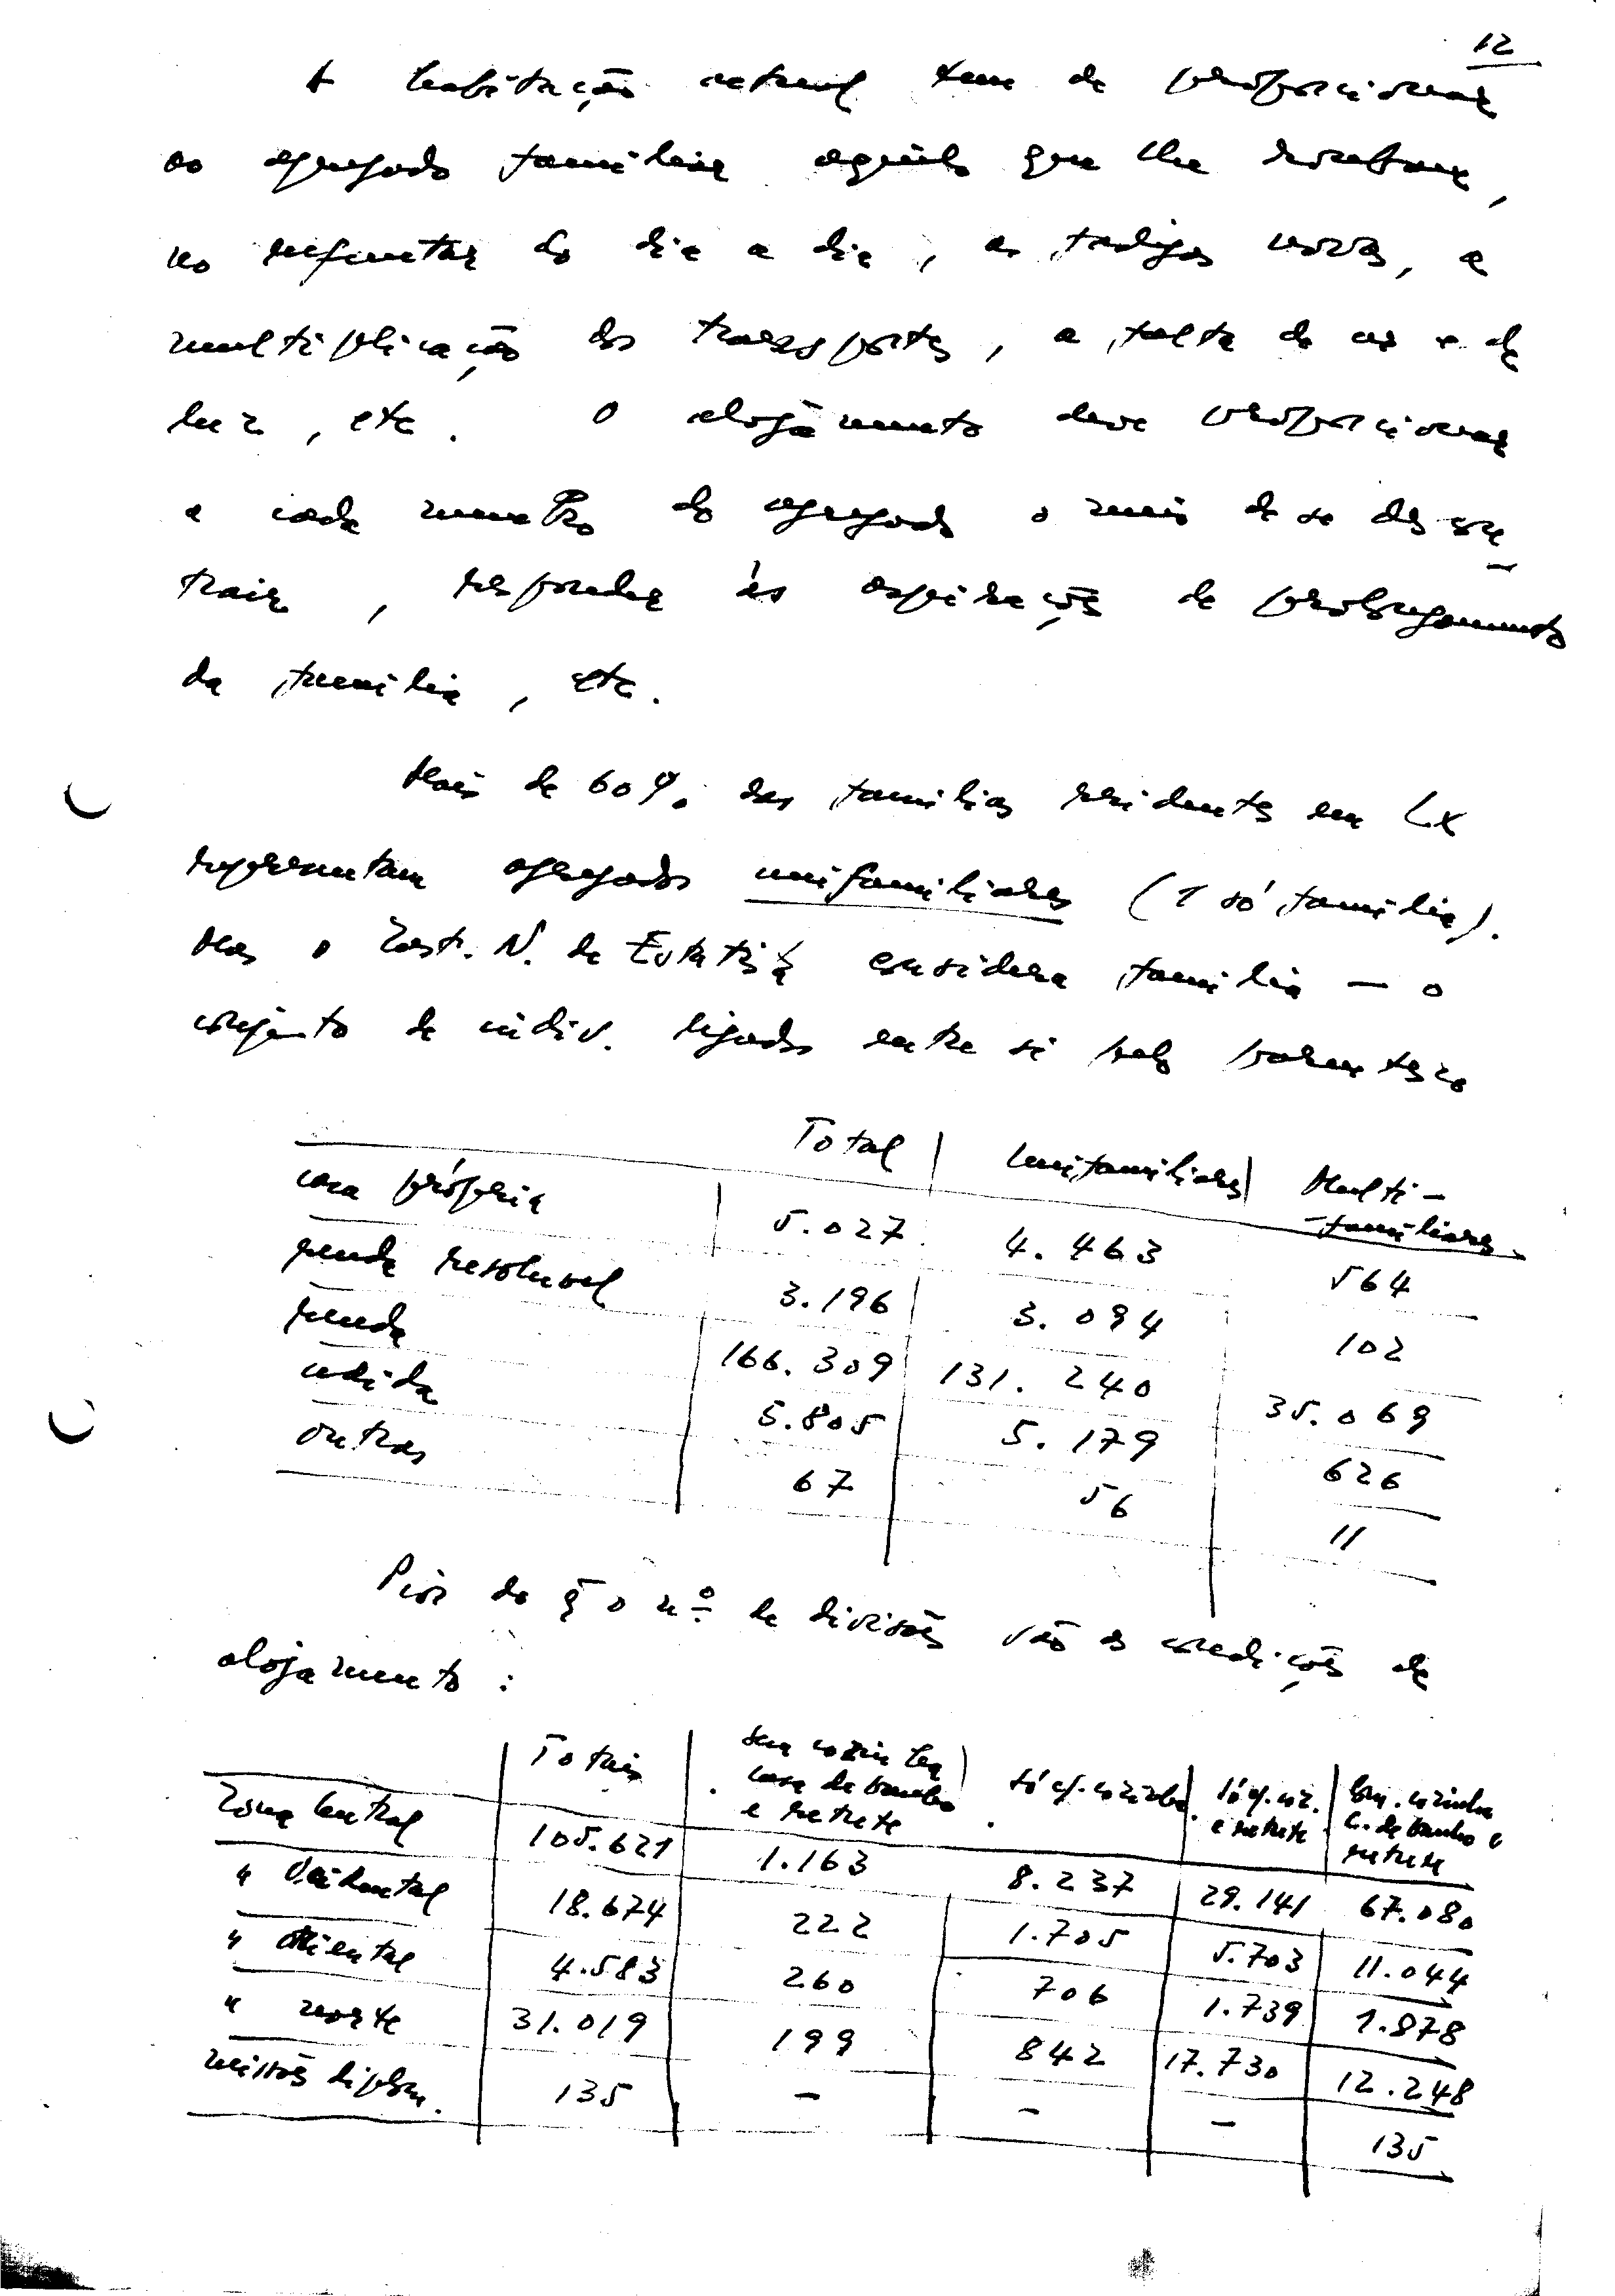 12
A habitação actual tem de proporcionar
ao agregado familiar aquilo que lhe roubam,
no enfrentar do dia a dia, as fadigas novas, a
multiplicação dos transportes, a falta de ar e de
luz, etc. O alojamento deve proporcionar
a cada membro do agregado o meio de se des
trair, responder às aspirações de prolongamento
da família, etc.
Mais de 60% das famílias residentes em Lx
representam agregados unifamiliares (1 só família).
Mas o Inst. N. de Estatística considera família — o
conjunto de indiv. ligados entre si pelo parentesco
Total | Unifamiliares | Multi-
-familiares
casa própria 5.027 4.463 564
renda resoluvel 3.196 3.094 102
renda 166.309 131.240 35.069
cedida 5.805 5.179 626
outras 67 56 11
Pior do q̃ o nº de divisões são as condições de
alojamento:
Totais | sem cozinha | só c/. cozinha | só c/. coz. | Com. cozinha
casa de banho e retrete C. de banho e
e retrete retrete
Zona Central 105.621 1.163 8.237 29.141 67.080
" Ocidental 18.674 222 1.705 5.703 11.044
" Oriental 4.583 260 706 1.739 1.878
" norte 31.019 199 842 17.730 12.248
missões diplom. 135 - - - 135